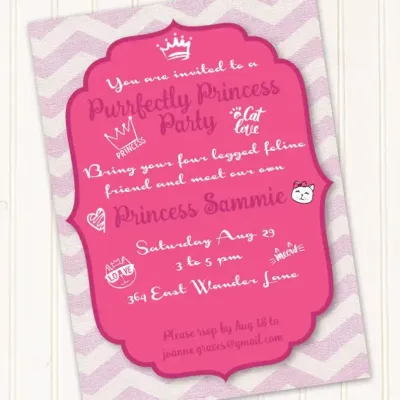 You are invited to a
Purrfectly Princess
Party
Cat
love
PRINCESS
Bring your four legged feline
friend and meet our own
Princess Sammie
Saturday Aug. 29
3 to 5 pm
LOVE
meow
364 East Wander Lane
Please rsvp by Aug 18 to
joanne.graves@gmail.com